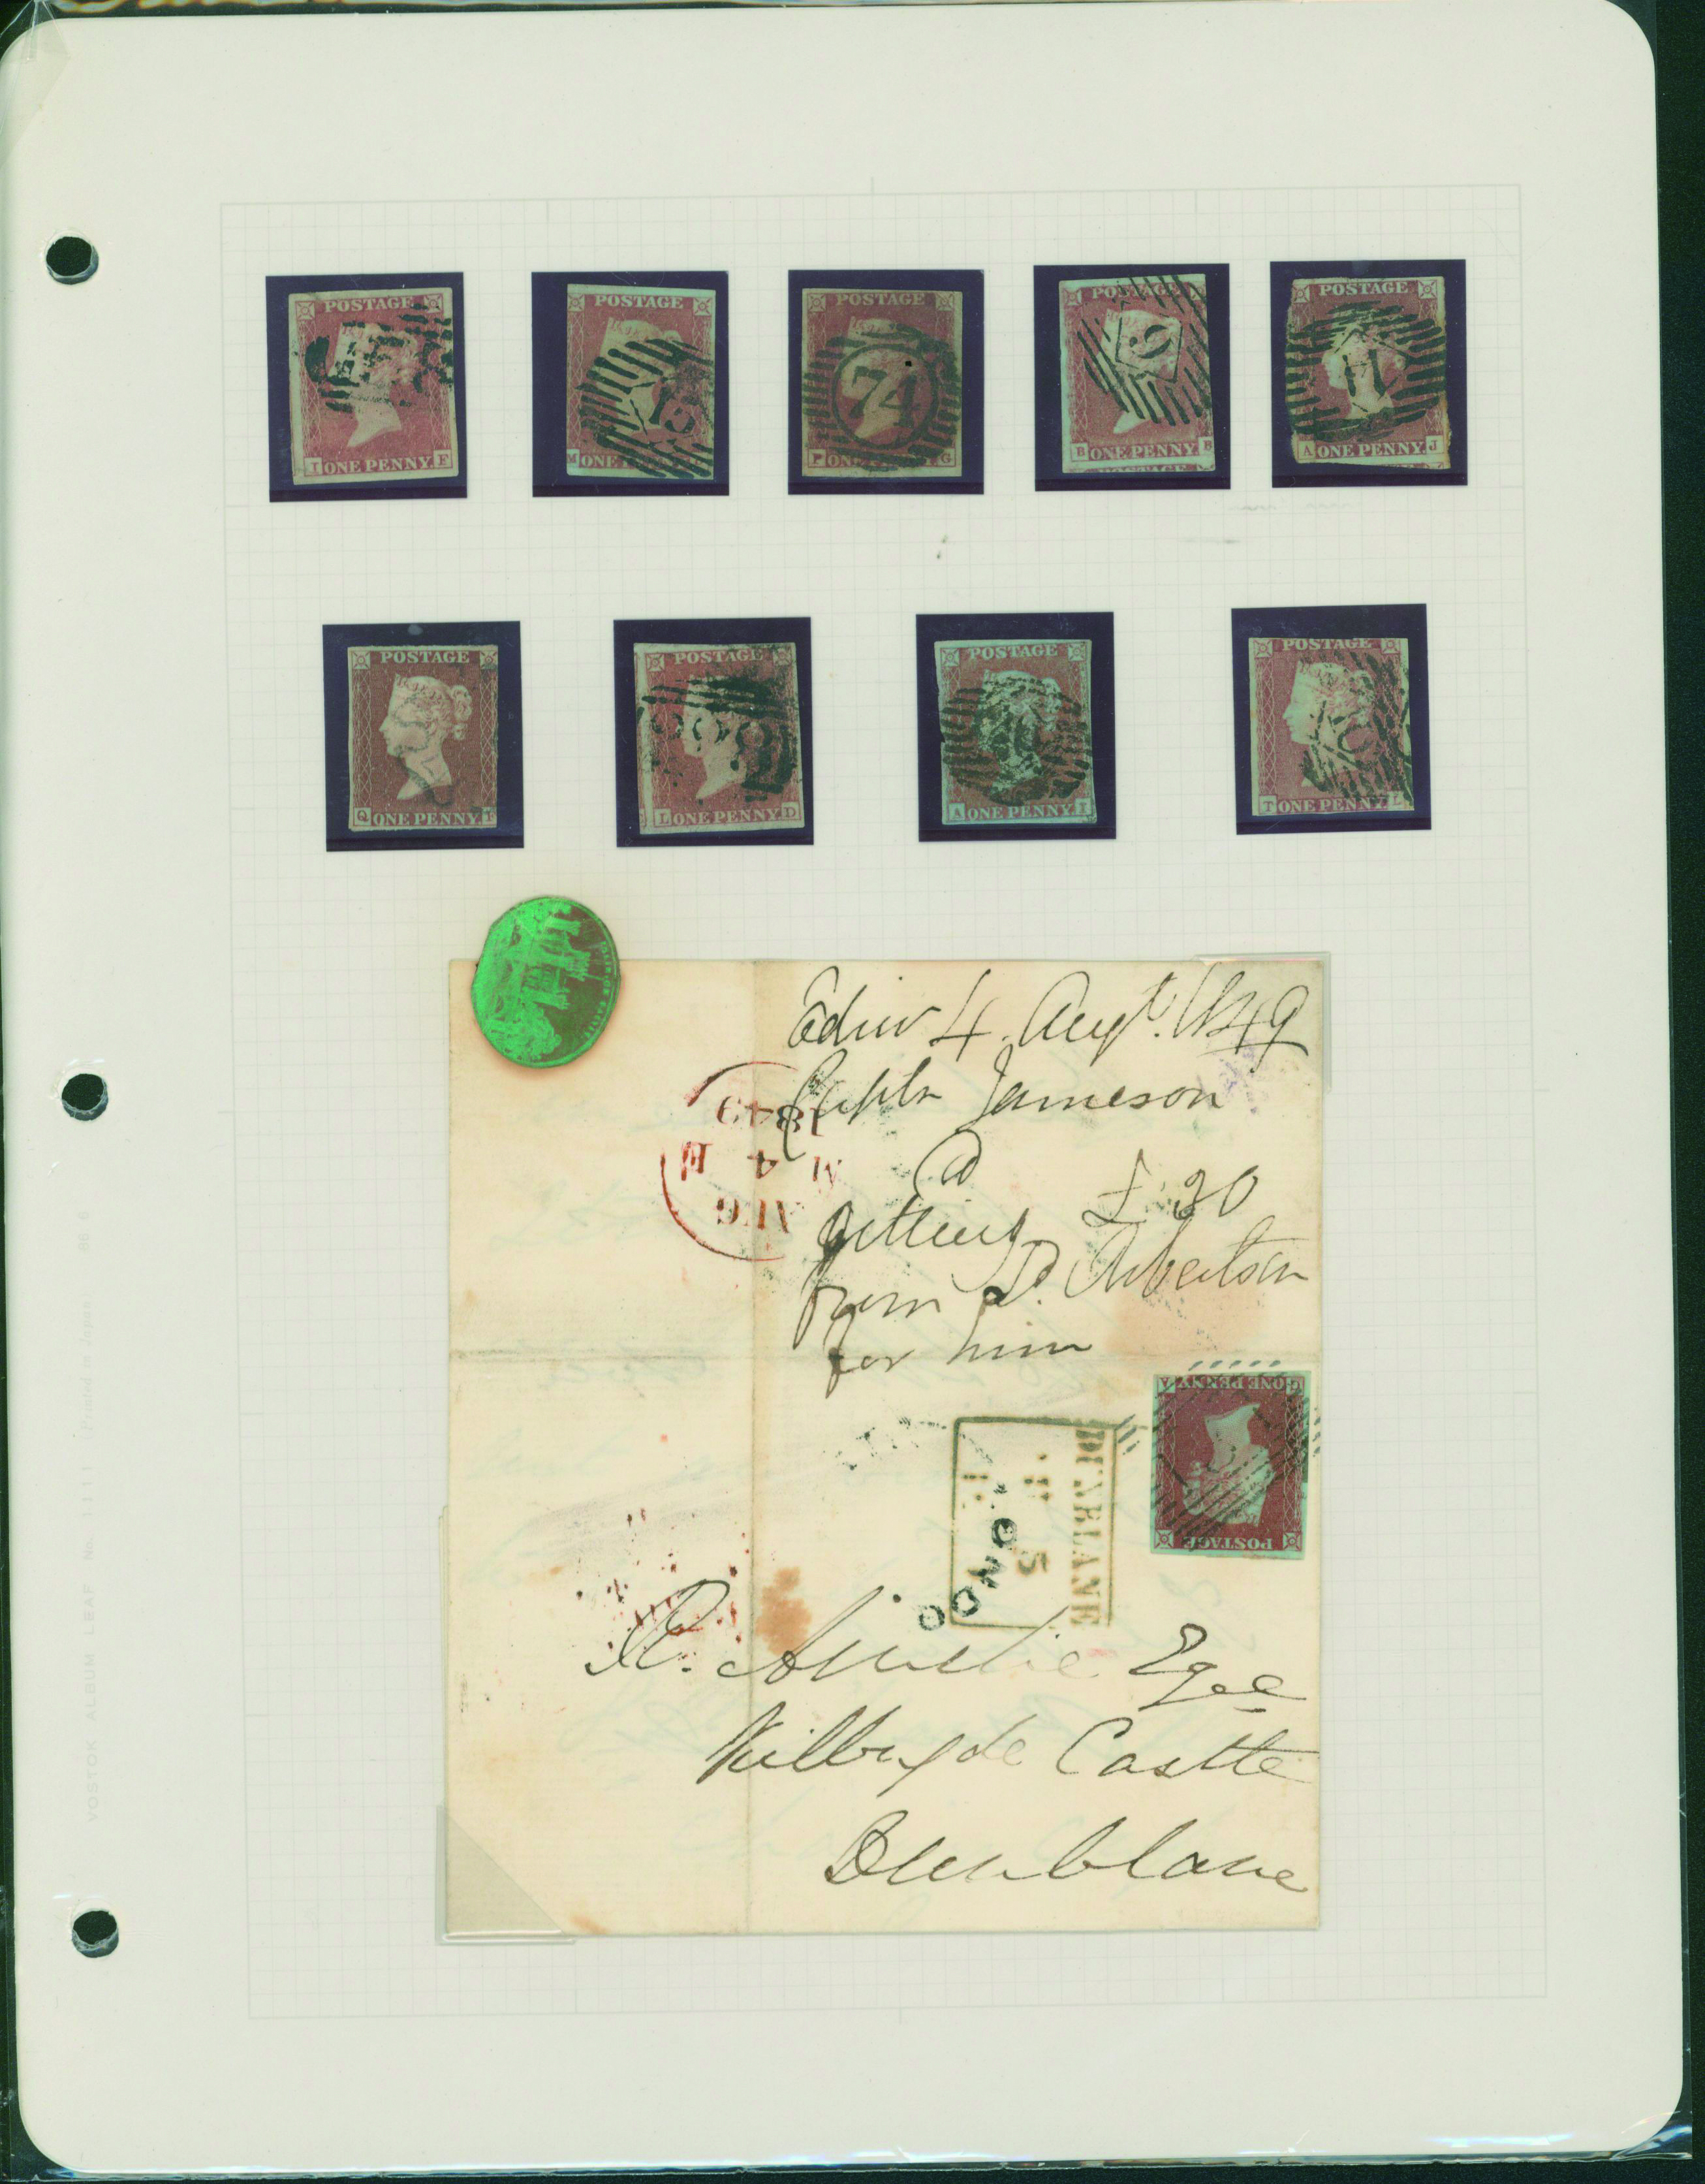 POSTAGE
I ONE PENNY F
POSTAGE
M ONE
13
POSTAGE
74
P ON NY G
POSTAGE
B ONE PENNY B
POSTAGE
POSTAGE
11
A ONE PENNY J
POSTAGE
Q ONE PENNY F
POSTAGE
L ONE PENNY D
POSTAGE
A ONE PENNY I
POSTAGE
T ONE PENNY L
Edinr 4. Augt. 1849
Captn Jameson
£30
from D.
for him
1849
M 4 E
AUG
G ONE PENNY A
POSTAGE
DUNBLANE
5
Esqre
Kilbryde Castle
Dunblane
VOSTOK ALBUM LEAF No. 1111 Printed in Japan